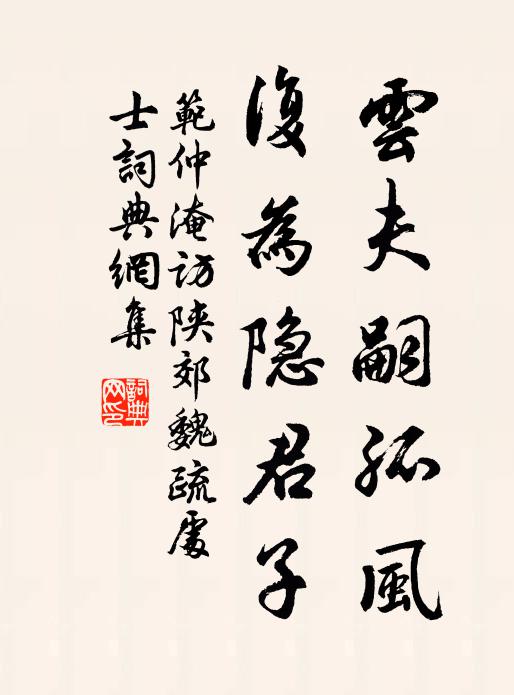 雲夫嗣孤風
復為隐君子
範仲淹訪陝郊魏疏處
士詞典網集
詞典
网印